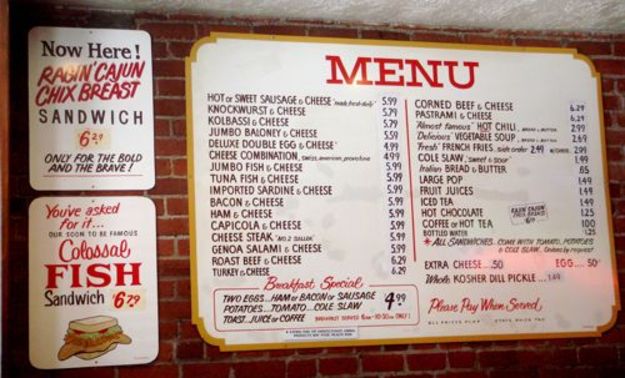 Now Here!
RAGIN' CAJUN
CHIX BREAST
SANDWICH
$6.29
ONLY FOR THE BOLD
AND THE BRAVE!
You've asked
for it...
OUR SOON TO BE FAMOUS
Colossal
FISH
Sandwich $6.29
MENU
HOT or SWEET SAUSAGE & CHEESE "made fresh daily" 5.99
KNOCKWURST & CHEESE 5.79
KOLBASSI & CHEESE 5.79
JUMBO BALONEY & CHEESE 5.79
DELUXE DOUBLE EGG & CHEESE 4.99
CHEESE COMBINATION, swiss, american, provolone 4.99
JUMBO FISH & CHEESE 5.79
TUNA FISH & CHEESE 5.79
IMPORTED SARDINE & CHEESE 5.79
BACON & CHEESE 5.79
HAM & CHEESE 5.79
CAPICOLA & CHEESE 5.79
CHEESE STEAK "NO. 2 SELLER" 5.79
GENOA SALAMI & CHEESE 5.79
ROAST BEEF & CHEESE 6.29
TURKEY & CHEESE 6.29
Breakfast Special
TWO EGGS...HAM or BACON or SAUSAGE
POTATOES...TOMATO...COLE SLAW
TOAST...JUICE or COFFEE
4.99
CORNED BEEF & CHEESE 6.29
PASTRAMI & CHEESE 6.29
"Almost famous" HOT CHILI, BREAD & BUTTER 2.99
"Delicious" VEGETABLE SOUP, BREAD & BUTTER 2.69
"Fresh" FRENCH FRIES, side order 2.49 2.99
COLE SLAW, "sweet & sour" 1.49
Italian BREAD & BUTTER .85
LARGE POP 1.49
FRUIT JUICES 1.49
ICED TEA 1.49
HOT CHOCOLATE 1.25
COFFEE or HOT TEA 1.00
BOTTLED WATER 1.25
*ALL SANDWICHES COME WITH TOMATO, POTATOES
& COLE SLAW. Onions by request
EXTRA CHEESE...50 EGG....50
Whole KOSHER DILL PICKLE...1.49
Please Pay When Served
ALL PRICES PLUS STATE SALES TAX